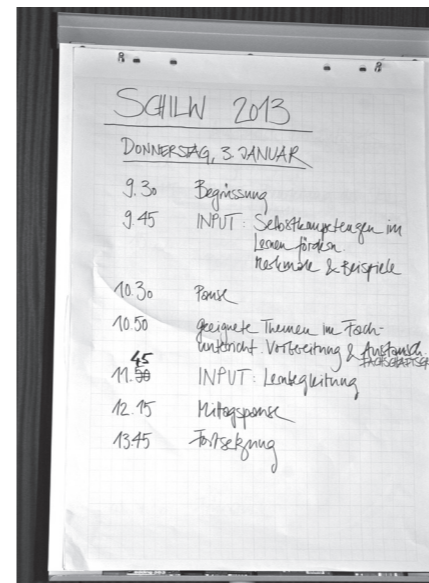 SCHILW 2013
DONNERSTAG, 3. JANUAR
9.30 Begrüssung
9.45 INPUT: Selbstkompetenzen im
Lernen fördern.
Merkmale & Beispiele
10.30 Pause
10.50 geeignete Themen im Fach-
unterricht. Vorbereitung & Austausch
11.45 INPUT: Lernbegleitung
12.15 Mittagspause
13.45 Fortsetzung